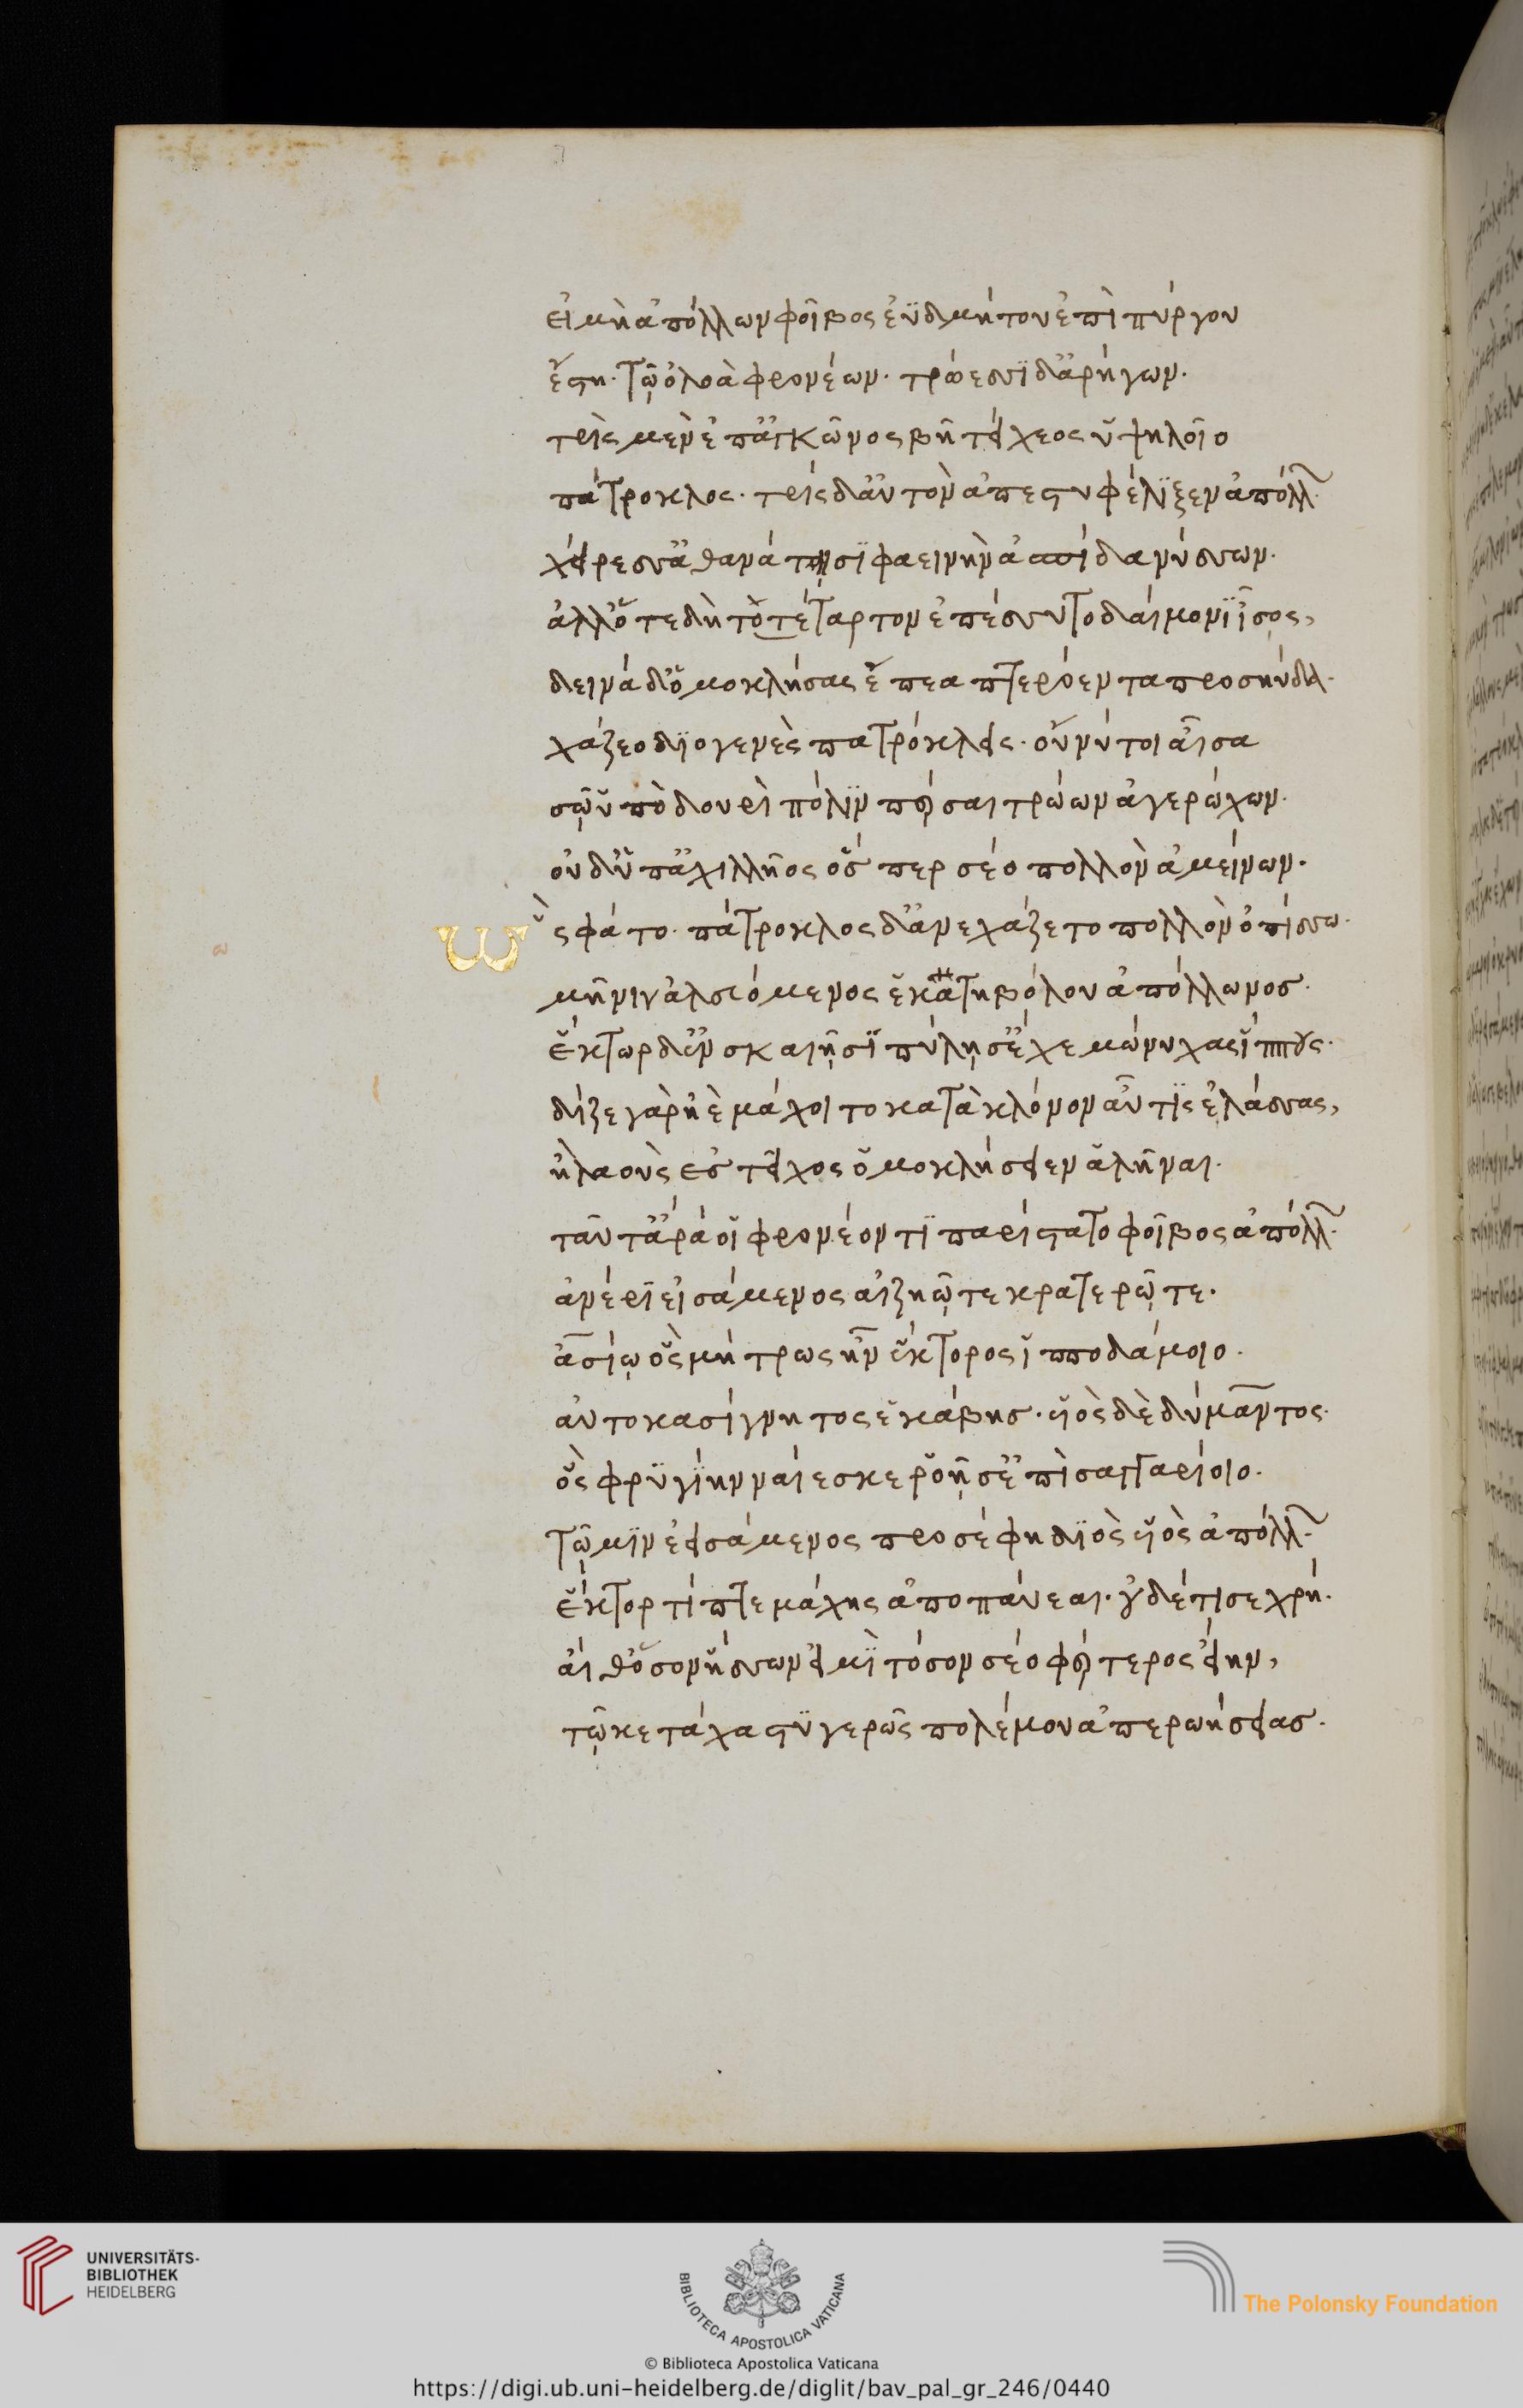 εἰ μὴ ἀπόλλων φοῖβος ἐϋδμήτου ἐπὶ πύργου
ἔστη· τῷ ὀλοὰ φρονέων· τρώεσσϊ δ' ἀρήγων·
τρὶς μὲν ἐπ' ἀγκῶνος βῆ τείχεος ὑψηλοῖο
πάτροκλος· τρὶς δ' αὐτὸν ἀπεστυφέλϊξεν ἀπόλλ
χείρεσσ' ἀθανάτησϊ φαεινὴν ἀσπίδα νύσσων·
ἀλλ' ὅτε δὴ τὸ τέταρτον ἐπέσσυτο δαίμονϊ ἶσος,
δεινὰ δ' ὁμοκλήσας ἔπεα πτερόεντα προσηύδα·
χάζεο διογενὲς πατρόκλεις· οὔ νύ τοι αἶσα
σῷ ὑπὸ δουρὶ πόλϊν πέρσαι τρώων ἀγερώχων·
οὐδ' ὑπ' ἀχιλλῆος ὅς περ σέο πολλὸν ἀμείνων·
ὣς φάτο· πάτροκλος δ' ἀνεχάζετο πολλὸν ὀπίσσω·
μῆνιν ἀλευόμενος ἑκατηβόλου ἀπόλλωνος·
ἕκτωρ δ' ἐν σκαιῇσϊ πύλῃσ' ἔχε μώνυχας ἵππους·
δίζε γὰρ ἠὲ μάχοιτο κατὰ κλόνον αὖτϊς ἐλάσσας,
ἢ λαοὺς ἐς τεῖχος ὁμοκλήσειεν ἀλῆναι·
ταῦτ' ἄρά οἱ φρονέοντϊ παρίστατο φοῖβος ἀπόλλ
ἀνέρϊ εἰσάμενος αἰζηῷ τε κρατερῷ τε·
ἀσίῳ ὃς μήτρως ἦν ἕκτορος ἱπποδάμοιο·
αὐτοκασίγνητος ἑκάβης· υἱὸς δὲ δύμαντος·
ὃς φρϋγίην ναίεσκε ῥοῇσ' ἔπι σαγγαρίοιο·
τῷ μϊν ἐεισάμενος προσέφη διὸς υἱὸς ἀπόλλ
ἕκτορ τίπτε μάχης ἀποπαύεαι· οὐδέ τί σε χρή·
αἴθ' ὅσον ἥσσων εἰμϊ τόσον σέο φέρτερος εἴην,
τῷ κε τάχα στϋγερῶς πολέμου ἀπερωήσειας·
UNIVERSITÄTS-
BIBLIOTHEK
HEIDELBERG
BIBLIOTECA APOSTOLICA VATICANA
The Polonsky Foundation
© Biblioteca Apostolica Vaticana
https://digi.ub.uni-heidelberg.de/diglit/bav_pal_gr_246/0440